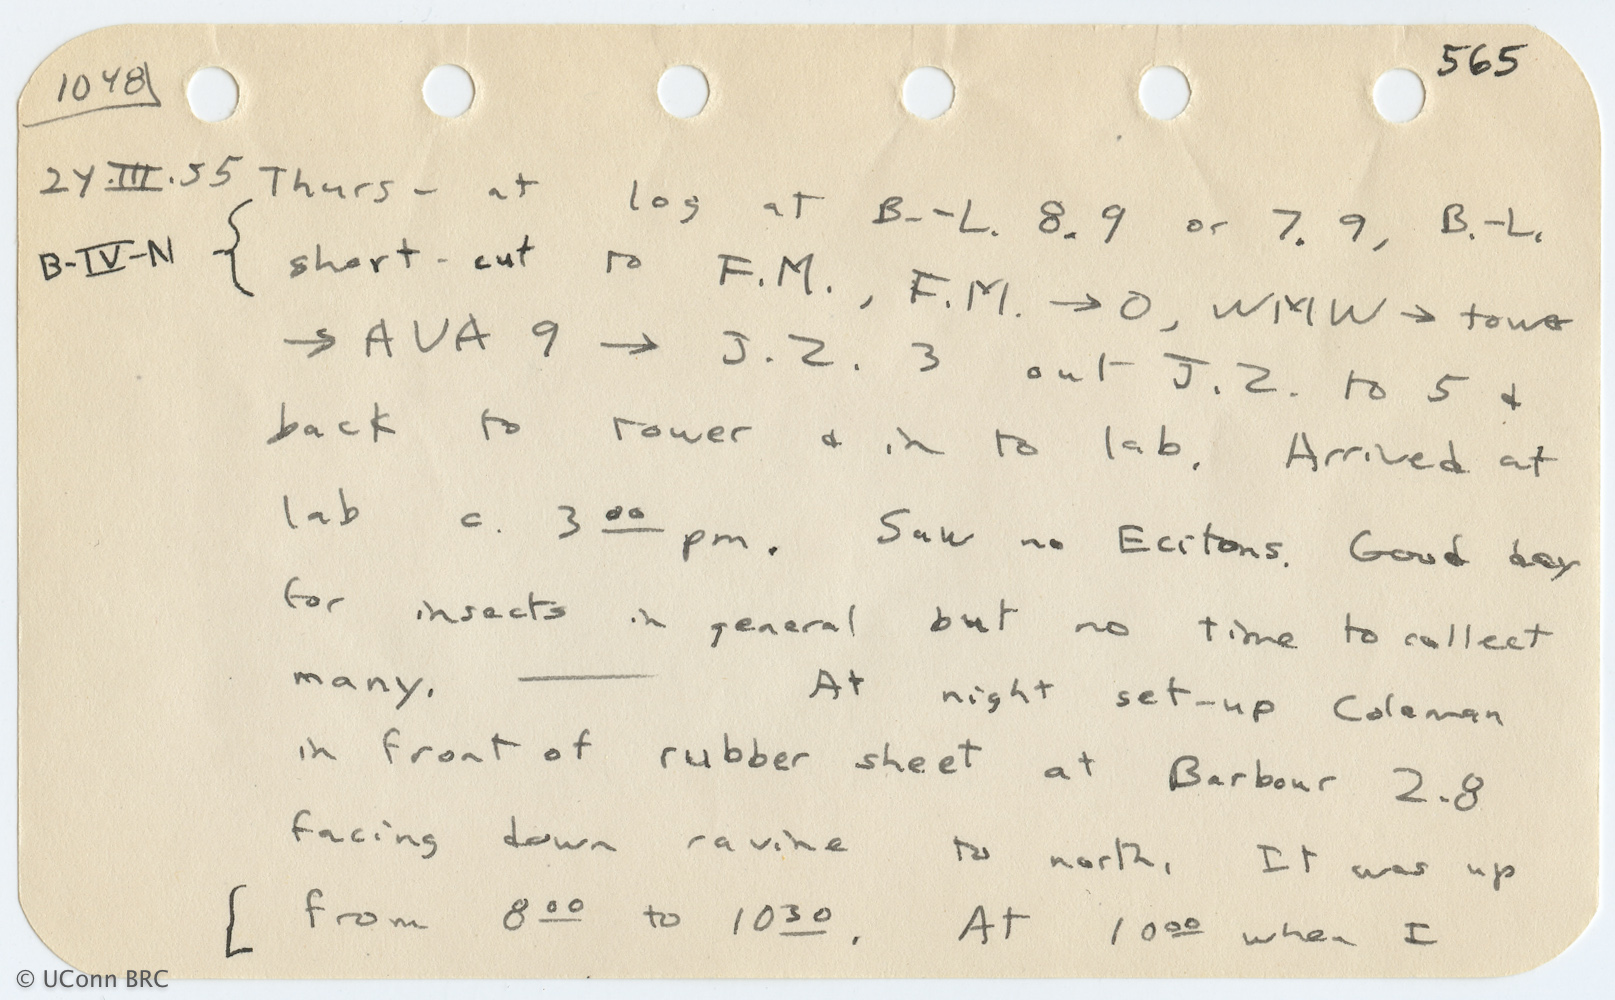 1048
565
24.III.55 Thurs- at log at B.-L. 8.9 or 7.9, B.-L.
B-IV-N { short-cut to F.M., F.M. → 0, WMW → tower
→ AVA 9 → J.Z. 3 out J.Z. to 5 &
back to tower & in to lab. Arrived at
lab c. 3 00 pm. Saw no Ecitons. Good day
for insects in general but no time to collect
many. —— At night set-up Coleman
in front of rubber sheet at Barbour 2.8
facing down ravine to north. It was up
[ from 8 00 to 10 30. At 10 00 when I
© UConn BRC